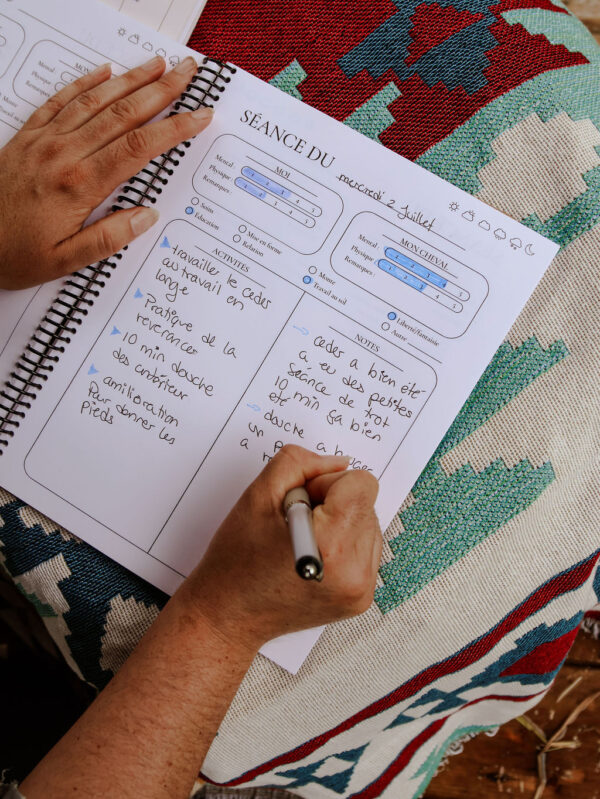 SÉANCE DU mercredi 2 juillet
MOI
Mental :
Physique :
Remarques :
MON CHEVAL
Mental :
Physique :
Remarques :
Soins
Éducation
Mise en forme
Relation
Monte
Travail au sol
Liberté/fantaisie
Autre
ACTIVITÉS
travailler le ceder
au travail en
longe
Pratique de la
reverancer
10 min douche
des antérieur
amélioration
Pour donner les
pieds
NOTES
ceder a bien été
a eu des petites
Séance de trot
10 min ça bien
été
douche a bouger
un p
a m